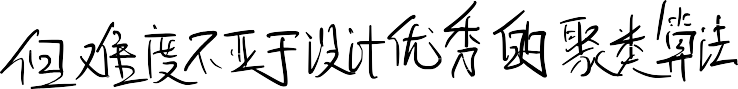 但难度不亚于设计优秀的聚类算法